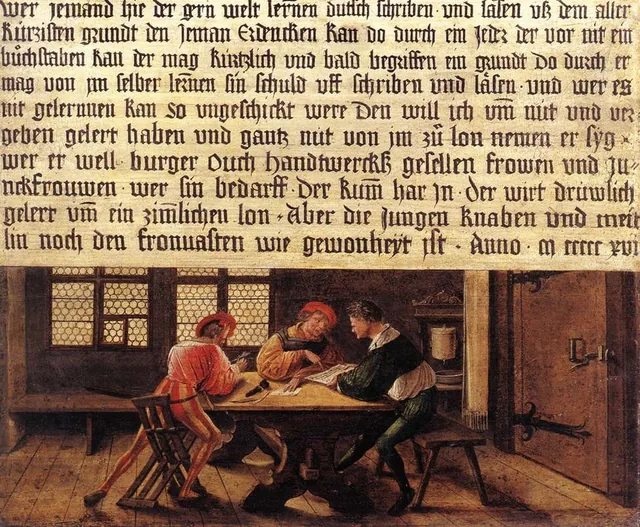 wer jemand hie der gern welt lernen dutsch schriben vnd läsen vß dem aller
kürtzisten grundt den jeman Erdencken kan do durch ein jeder der vor nit ein
büchstaben kan der mag kürtzlich vnd bald begriffen ein grundt do durch er
mag von jm selber lernen sin schuld vff schriben vnd läsen · vnd wer es
nit gelernnen kan so vngeschickt were Den will ich vm̄ nüt vnd ver
geben gelert haben vnd gantz nüt von jm zů lon nemen er syg ·
wer er well · burger Ouch handtwerckß gesellen frowen vnd ju-
nckfrouwen · wer sin bedarff · Der kum̄ har jn · der wirt drüwlich
gelert vm̄ ein zimlichen lon · Aber die jungen knaben vnd meit
lin noch den fronuasten wie gewonheyt ist · Anno · m ccccc xvi